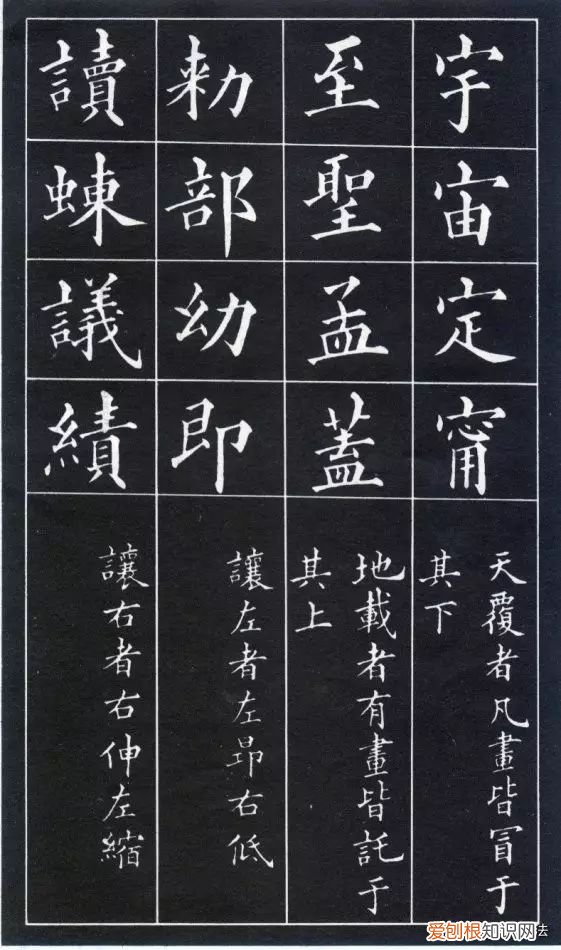 宇宙定甯
天覆者凡畫皆冒于
其下
至聖孟蓋
地載者有畫皆託于
其上
勑部幼即
讓左者左昂右低
讀蝀議績
讓右者右伸左縮
爱刨根知识网法